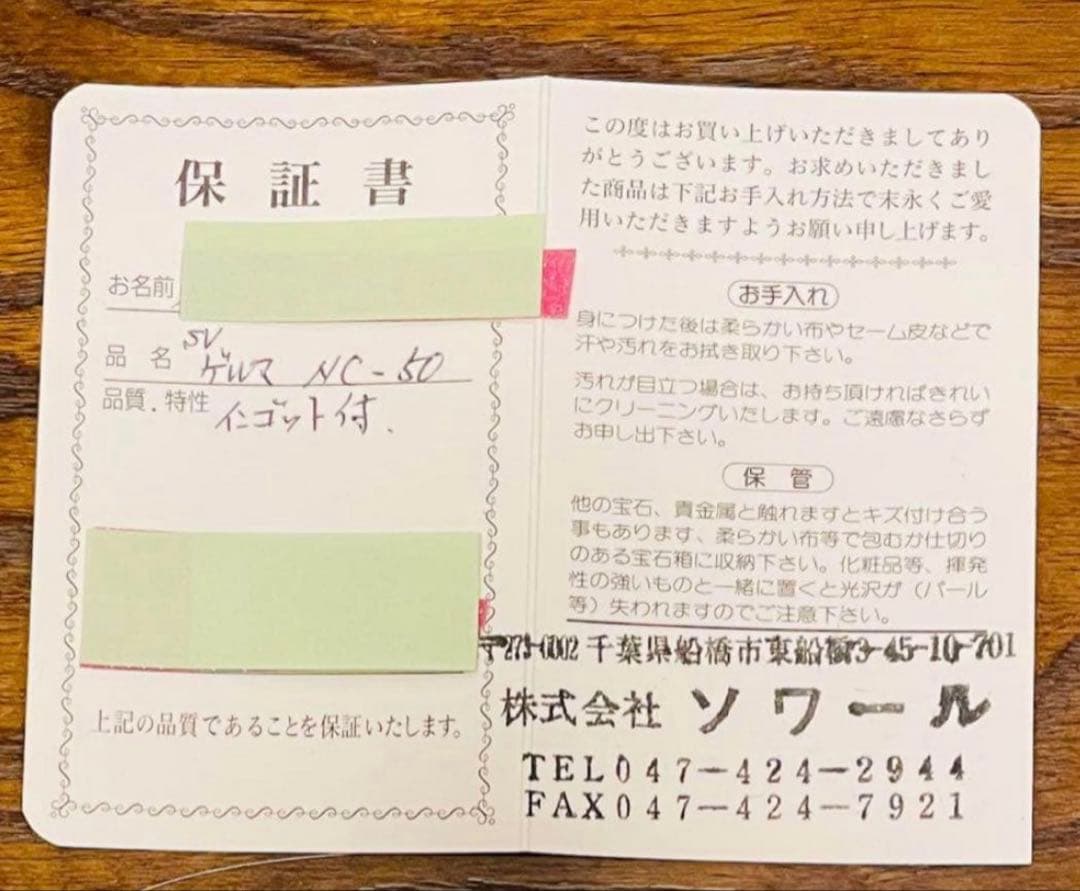 保証書
お名前
品名 SV ゲルマ NC-50
品質.特性 インゴット付.
上記の品質であることを保証いたします。
この度はお買い上げいただきましてあり
がとうございます。お求めいただきまし
た商品は下記お手入れ方法で末永くご愛
用いただきますようお願い申し上げます。
お手入れ
身につけた後は柔らかい布やセーム皮などで
汗や汚れをお拭き取り下さい。
汚れが目立つ場合は、お持ち頂ければきれい
にクリーニングいたします。ご遠慮なさらず
お申し出下さい。
保管
他の宝石、貴金属と触れますとキズ付け合う
事もあります、柔らかい布等で包むか仕切り
のある宝石箱に収納下さい。化粧品等、揮発
性の強いものと一緒に置くと光沢が（パール
等）失われますのでご注意下さい。
〒273-0002 千葉県船橋市東船橋3-45-10-701
株式会社 ソワール
TEL047-424-2944
FAX047-424-7921